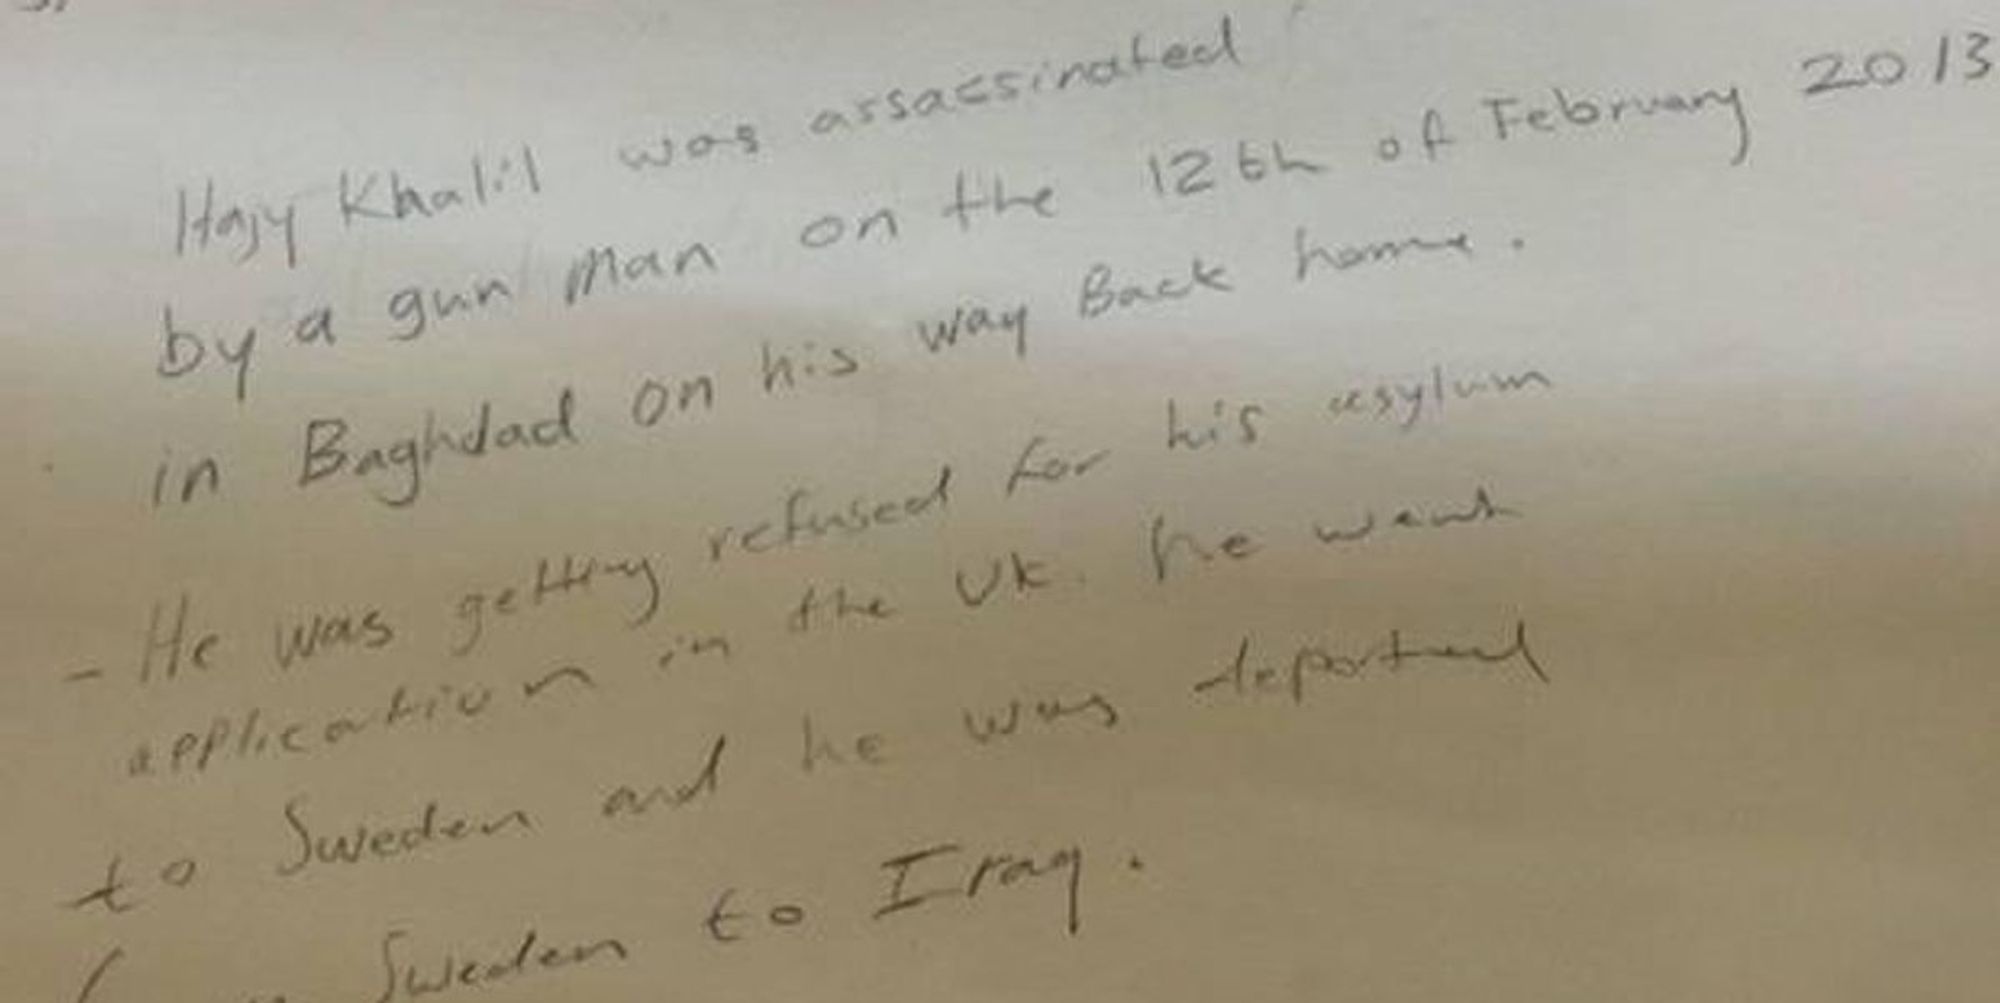 Hajy Khalil was assassinated
by a gun man on the 12th of February 2013
in Baghdad on his way Back home.
- He was getting refused for his asylum
application in the UK. he went
to Sweden and he was deported
Sweden to Iraq.